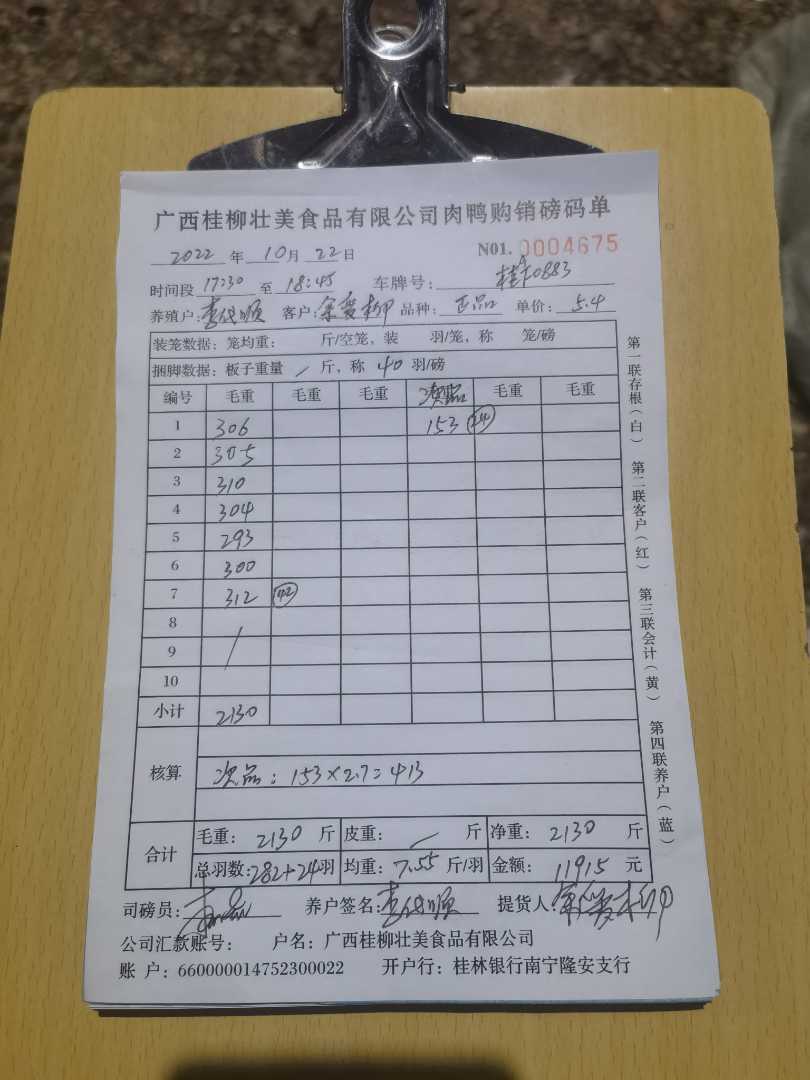 广西桂柳壮美食品有限公司肉鸭购销磅码单
2022 年 10 月 22 日 N01. 0004675
时间段 17:30 至 18:45 车牌号: 0883
养殖户: 客户: 品种: 正品 单价: 5.4
装笼数据: 笼均重: 斤/空笼, 装 羽/笼, 称 笼/磅
捆脚数据: 板子重量 / 斤, 称 40 羽/磅
编号 毛重 毛重 毛重 次品 毛重 毛重
1 306 153 24
2 305
3 310
4 304
5 293
6 300
7 312 42
8
9 /
10
小计 2130
核算 次品: 153×2.7=413
合计 毛重: 2130 斤 皮重: / 斤 净重: 2130 斤
总羽数: 282+24 羽 均重: 7.55 斤/羽 金额: 11915 元
司磅员: 养户签名: 提货人:
公司汇款账号: 户名: 广西桂柳壮美食品有限公司
账 户: 660000014752300022 开户行: 桂林银行南宁隆安支行
第一联存根(白) 第二联客户(红) 第三联会计(黄) 第四联养户(蓝)